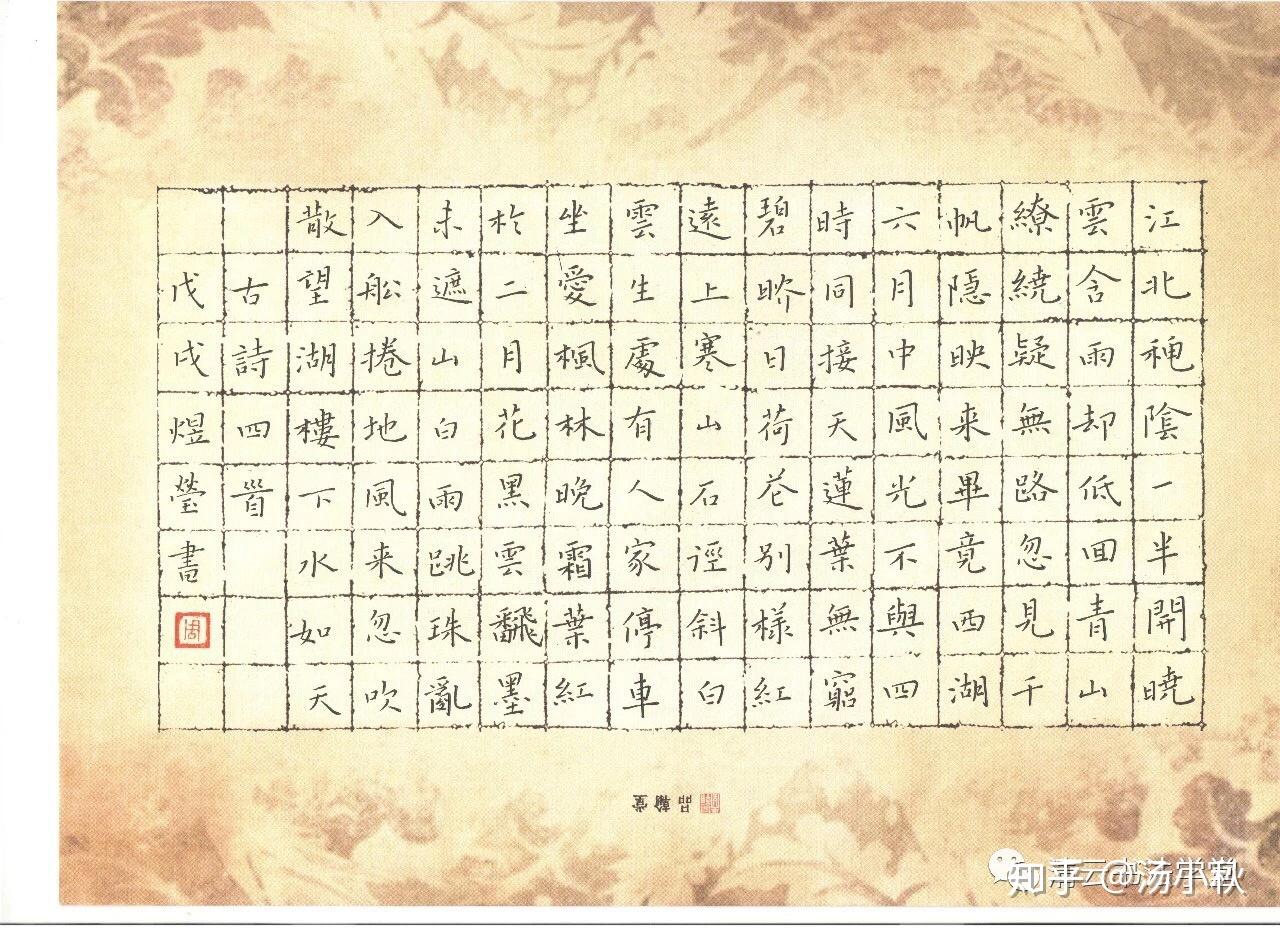 江北穐陰一半開曉
雲含雨却低囬青山
繚繞疑無路忽見千
帆隱映来畢竟西湖
六月中風光不與四
時同接天蓮葉無窮
碧映日荷花別樣紅
遠上寒山石徑斜白
雲生處有人家停車
坐愛楓林晚霜葉紅
於二月花黑雲飜墨
未遮山白雨跳珠亂
入船捲地風来忽吹
散望湖樓下水如天
古詩四首
戊戌煜瑩書
周
品翰堂
知乎 @汤小秋